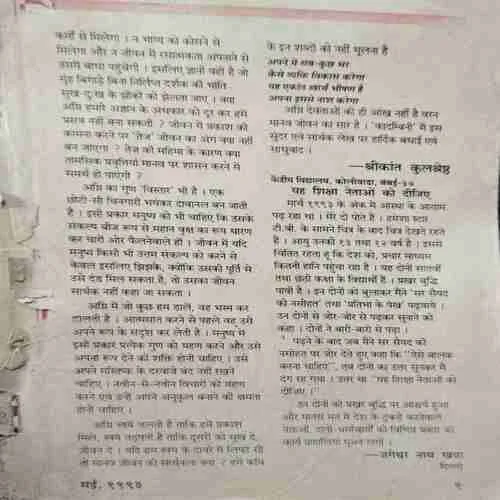 कहाँ से मिलेगा । न भाग्य को कोसने से
मिलेगा और न जीवन में रसात्मकता अपनाने से
उसमें बाधा पहुंचेगी । इसलिए ज्ञानी वही है जो
मुंह बिगाड़े बिना निर्लिप्त दर्शक की भांति
सुख-दुःख के झोंकों को झेलता जाए । क्या
अग्नि हमारे अज्ञान के अंधकार को दूर कर हमें
प्रसन्न नहीं बना सकती ? जीवन में प्रकाश की
कामना करने पर 'तेज' जीवन का अंग क्या नहीं
बन जाएगा ? तेज की महिमा के कारण क्या
तामसिक प्रवृत्तियां मानव पर शासन करने में
समर्थ हो पाएंगी ?
अग्नि का गुण 'विस्तार' भी है । एक
छोटी-सी चिनगारी भयंकर दावानल बन जाती
है । इसी प्रकार मनुष्य को भी चाहिए कि उसके
संकल्प बीज रूप से महान वृक्ष का रूप धारण
कर चारों ओर फैलनेवाले हों । जीवन में यदि
मनुष्य किसी भी उत्तम संकल्प को करने से
केवल इसलिए झिझके, क्योंकि उसकी पूर्ति से
उसे दंड मिल सकता है, तो उसका जीवन
सार्थक नहीं कहा जा सकता ।
अग्नि में जो कुछ हम डालें, वह भस्म कर
डालती है । आत्मसात करने से पहले वह उसे
अपने रूप के सदृश कर लेती है । मनुष्य में
इसी प्रकार प्रत्येक गुण को ग्रहण करने और उसे
अपना रूप देने की शक्ति होनी चाहिए । उसे
अपने मस्तिष्क के दरवाजे बंद नहीं रखने
चाहिए । नवीन-से-नवीन विचारों को ग्रहण
करने एवं उन्हें अपने अनुकूल बनाने की क्षमता
होनी चाहिए ।
अग्नि स्वयं जलती है ताकि हमें प्रकाश
मिले, स्वयं तड़पती है ताकि दूसरों को सुख दे,
जीवन दे । यदि हम स्वयं के दायरे में लिपटे रहे
तो मानव जीवन की सार्थकता क्या ? हमें कवि
के इन शब्दों को नहीं भूलना है
अपने में सब-कुछ भर
कैसे व्यक्ति विकास करेगा
यह एकांत स्वार्थ भीषण है
अपना इससे नाश करेगा
अग्नि देवताओं की ही आंख नहीं है वरन
मानव जीवन का सार है । 'कादम्बिनी' में इस
सुंदर एवं सार्थक लेख पर हार्दिक बधाई एवं
साधुवाद ।
—श्रीकांत कुलश्रेष्ठ
केंद्रीय विद्यालय, कोलीवाड़ा, बंबई-३७
यह शिक्षा नेताओं को दीजिए
मार्च १९९३ के अंक में आस्था के आयाम
पढ़ रहा था । मेरे दो पोते हैं । हमेशा स्टार
टी.वी. के सामने चित्र के बाद चित्र देखते रहते
हैं । आयु उनकी १३ तथा १२ वर्ष है । इससे
चिंतित रहता हूं कि देश को, प्रचार माध्यम
कितनी हानि पहुंचा रहा है । यह दोनों सातवीं
तथा छठी कक्षा के विद्यार्थी हैं । प्रखर बुद्धि
पायी है । इन दोनों को बुलाकर मैंने 'सर सैयद
की नसीहत' तथा 'प्रतिभा के पंख' पढ़वाये ।
उन दोनों से जोर-जोर से पढ़कर सुनाने को
कहा । दोनों ने बारी-बारी से पढ़ा ।
पढ़ने के बाद जब मैंने सर सैयद की
नसीहत पर जोर देते हुए कहा कि "ऐसे बालक
करना चाहिए", तब दोनों का उत्तर सुनकर मैं
दंग रह गया । उत्तर था "यह शिक्षा नेताओं को
दीजिए ।"
उन दोनों की प्रखर बुद्धि पर आश्चर्य हुआ
और मानस मन में देश के टुकड़े करनेवाले
नेताओं, दलों, धर्माचार्यों की विभिन्न प्रकार की
कार्य प्रणालियां घूमने लगीं ।
—जगेश्वर नाथ खन्ना
दिल्ली
मई, १९९३
९